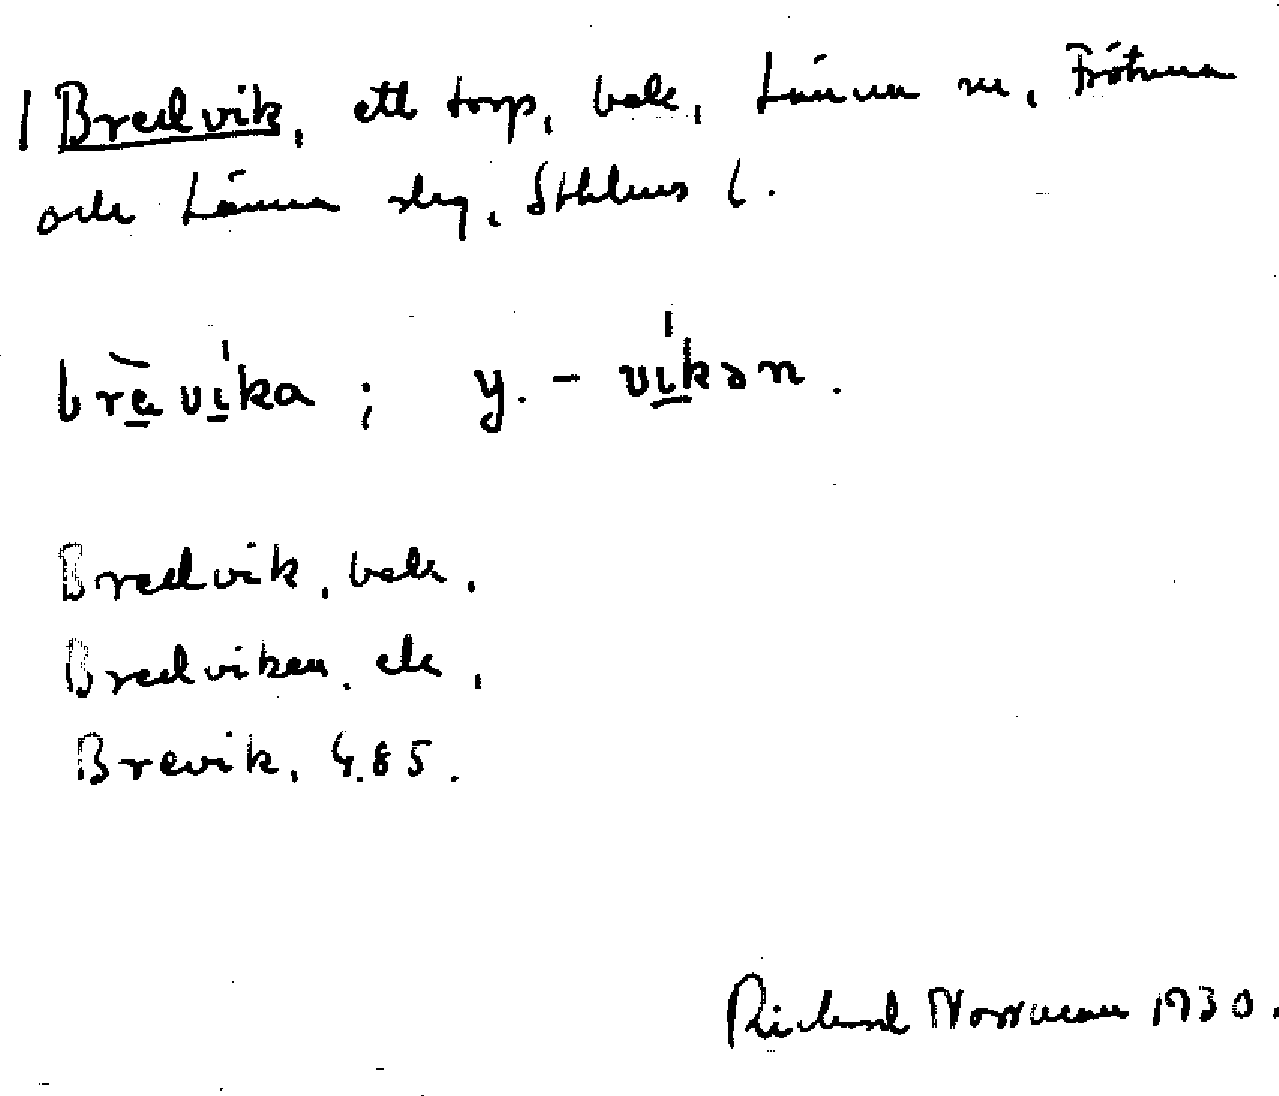 1 Bredvik, ett torp, bek, Länna sn, Frötuna
och Länna skg, Sthlms l.
brèvíka; y. - víkən.
Bredvik, bek.
Bredviken. ek,
Brevik, G.85.
Richard Norrman 1930.